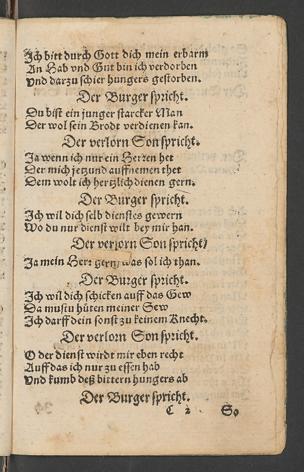 Ich bitt durch Gott dich mein erbarm
An Hab vnd Gut bin ich verdorben
Vnd darzu schier hungers gestorben.
Der Burger spricht.
Du bist ein junger starcker Man
Der wol sein Brodt verdienen kan.
Der verlorn Son spricht.
Ja wenn ich nur ein Herren het
Der mich jetzund auffnemen thet
Dem wolt ich hertzlich dienen gern.
Der Burger spricht.
Ich wil dich selb dienstes gewern
Wo du nur dienst wilt bey mir han.
Der verlorn Son spricht/
Ja mein Herr gern/ was sol ich than.
Der Burger spricht.
Ich wil dich schicken auff das Gew
Da mustu hüten meiner Sew
Ich darff dein sonst zu keinem Knecht.
Der verlorn Son spricht.
O der dienst wirdt mir eben recht
Auff das ich nur zu essen hab
Vnd kumb deß bittern hungers ab
Der Burger spricht.
C 2 So